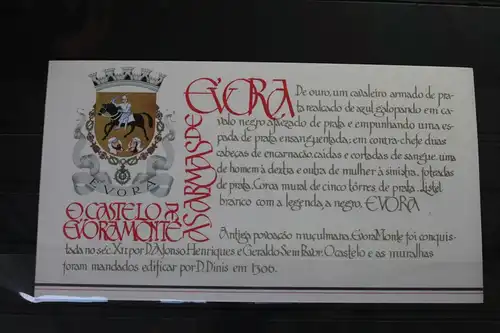 EVORA
O CASTELO DE
EVORAMONTE
AS ARMAS DE
EVORA
De ouro, um cavaleiro armado de pra-
ta realçado de azul, galopando em ca-
valo negro ajaezado de prata e empunhando uma es-
pada de prata ensanguentada; em contra-chefe duas
cabeças de encarnação, caídas e cortadas de sangue, uma
de homem à dextra e outra de mulher à sinistra, toucadas
de prata. Coroa mural de cinco tôrres de prata. Listel
branco com a legenda, a negro, EVORA
Antiga povoação muçulmana, EvoraMonte foi conquis-
tada no séc. XII por D. Afonso Henriques e Geraldo Sem Pavor. O castelo e as muralhas
foram mandados edificar por D. Dinis em 1306.